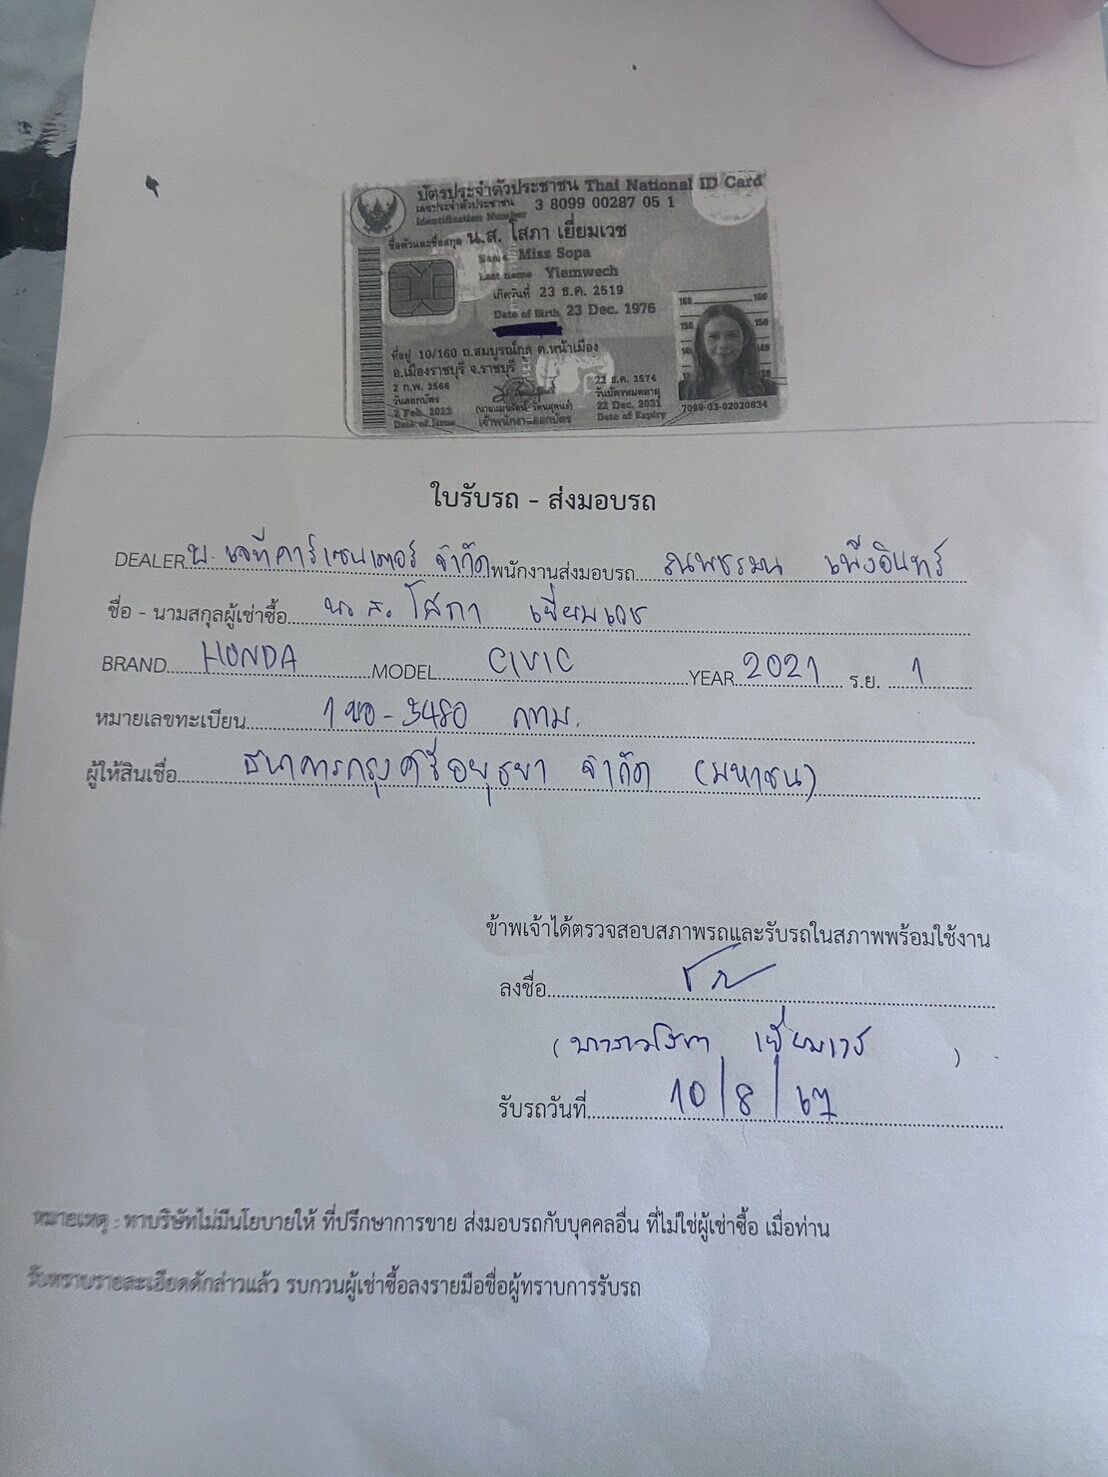 บัตรประจำตัวประชาชน Thai National ID Card
เลขประจำตัวประชาชน 3 8099 00287 05 1
Identification Number
ชื่อตัวและชื่อสกุล น.ส. โสภา เยี่ยมเวช
Name Miss Sopa
Last name Yiemwech
เกิดวันที่ 23 ธ.ค. 2519
Date of Birth 23 Dec. 1976
ที่อยู่ 10/160 ถ.สมบูรณ์กุล ต.หน้าเมือง
อ.เมืองราชบุรี จ.ราชบุรี
2 ก.พ. 2566
วันออกบัตร
2 Feb. 2023
Date of Issue
เจ้าพนักงานออกบัตร
22 ธ.ค. 2574
วันบัตรหมดอายุ
22 Dec. 2031
Date of Expiry
7099-03-02020834
ใบรับรถ - ส่งมอบรถ
DEALER บ. เจที คาร์เซนเตอร์ จำกัด พนักงานส่งมอบรถ ณพชรมน เพ็งอินทร์
ชื่อ - นามสกุลผู้เช่าซื้อ น.ส. โสภา เยี่ยมเวช
BRAND HONDA MODEL CIVIC YEAR 2021 ร.ย. 1
หมายเลขทะเบียน 1ขอ-3480 กทม.
ผู้ให้สินเชื่อ ธนาคารกรุงศรีอยุธยา จำกัด (มหาชน)
ข้าพเจ้าได้ตรวจสอบสภาพรถและรับรถในสภาพพร้อมใช้งาน
ลงชื่อ
( นางสาวโสภา เยี่ยมเวช )
รับรถวันที่ 10/8/67
หมายเหตุ : ทาบริษัทไม่มีนโยบายให้ ที่ปรึกษาการขาย ส่งมอบรถกับบุคคลอื่น ที่ไม่ใช่ผู้เช่าซื้อ เมื่อท่าน
รับทราบรายละเอียดดักล่าวแล้ว รบกวนผู้เช่าซื้อลงรายมือชื่อผู้ทราบการรับรถ